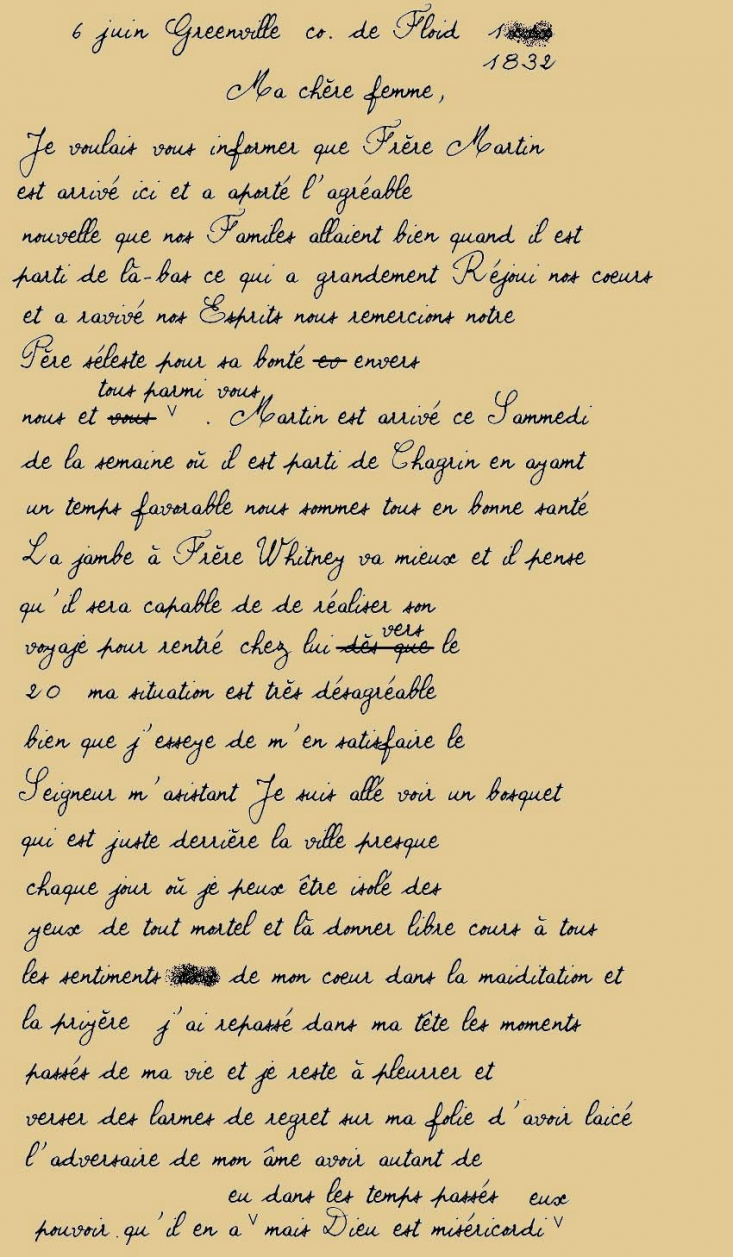 6 juin Greenville co. de Floid 1
1832
Ma chère femme,
Je voulais vous informer que Frère Martin
est arrivé ici et a aporté l'agréable
nouvelle que nos Familes allaient bien quand il est
parti de là-bas ce qui a grandement Réjoui nos coeurs
et a ravivé nos Esprits nous remercions notre
Père séleste pour sa bonté eo envers
tous parmi vous
nous et vous v . Martin est arrivé ce Sammedi
de la semaine où il est parti de Chagrin en ayamt
un temps favorable nous sommes tous en bonne santé
La jambe à Frère Whitney va mieux et il pense
qu'il sera capable de de réaliser son
vers
voyaje pour rentré chez lui dès que le
20 ma situation est très désagréable
bien que j'esseye de m'en satisfaire le
Seigneur m'asistant Je suis allé voir un bosquet
qui est juste derrière la ville presque
chaque jour où je peux être isolé des
yeux de tout mortel et là donner libre cours à tous
les sentiments de mon coeur dans la maiditation et
la priyère j'ai repassé dans ma tête les moments
passés de ma vie et je reste à pleurrer et
verser des larmes de regret sur ma folie d'avoir laicé
l'adversaire de mon âme avoir autant de
eu dans les temps passés eux
pouvoir qu'il en a v mais Dieu est miséricordi v